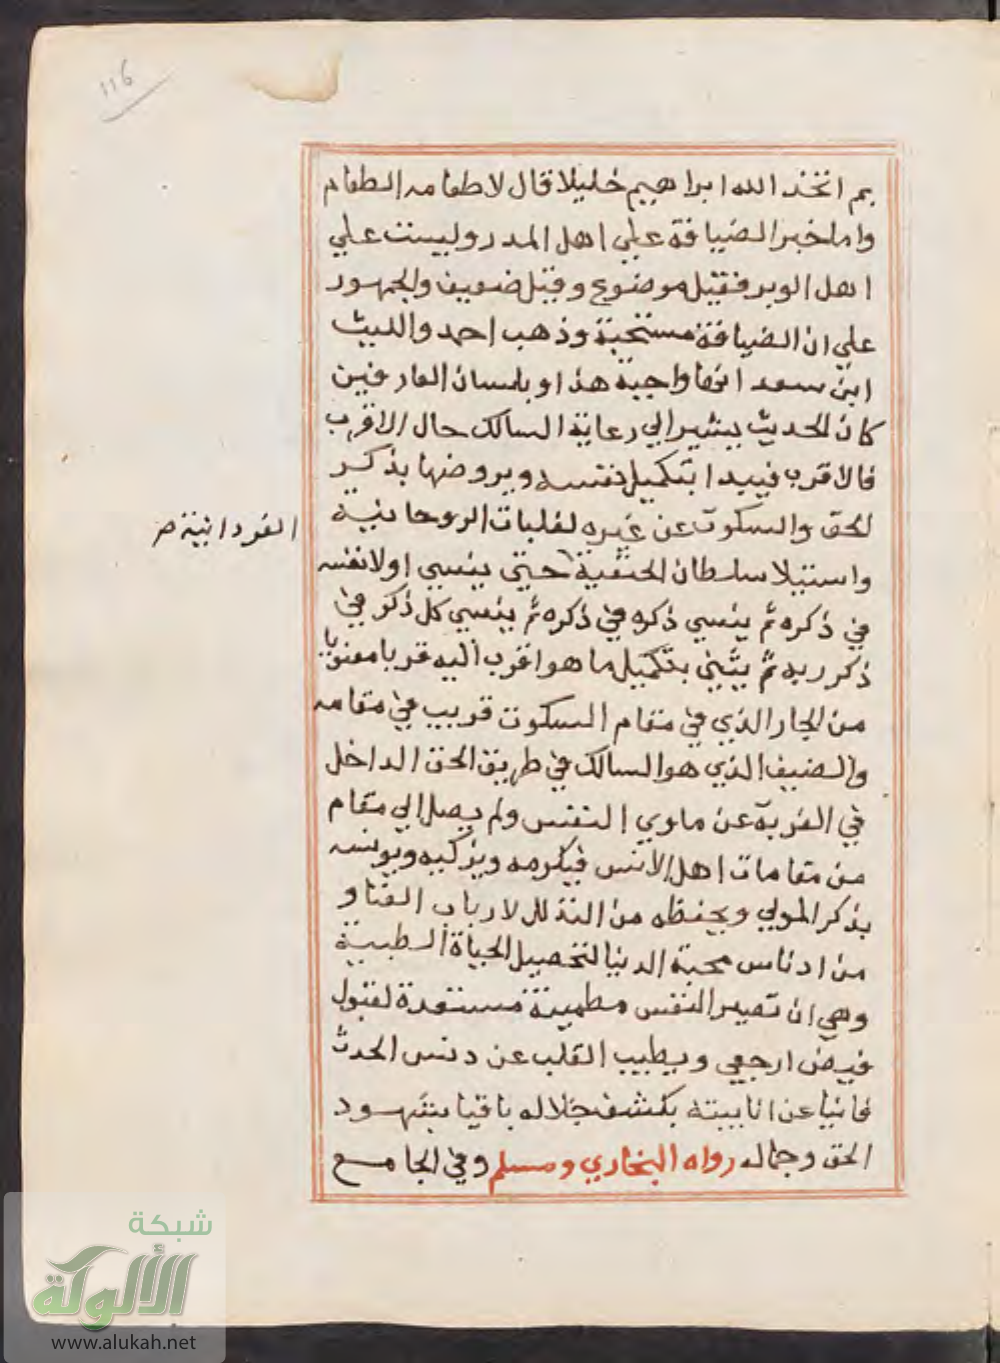 116
بم اتخذ الله ابراهيم خليلا قال لاطعامه الطعام
واما خبر الضيافة علي اهل المدر وليست علي
اهل الوبر فقيل موضوع وقيل ضعيف والجمهور
علي ان الضيافة مستحبة وذهب احمد والليث
ابن سعد انها واجبة هذا وبلسان العارفين
كان الحديث يشير الي رعاية السالك حال الاقرب
فالاقرب فيبدا بتكميل نفسه ويروضها بذكر
الحق والسكوت عن غيره لغلبات الروحانية
الفردانية صر
واستيلا سلطان الحقية حتي ينسي اولا نفسه
في ذكره ثم ينسي ذكره في ذكره ثم ينسي كل ذكر في
ذكر ربه ثم يثني بتكميل ما هو اقرب اليه قربا معنويا
من الجار الذي في مقام السكوت قريب في مقامه
والضيف الذي هو السالك في طريق الحق الداخل
في الغربة عن ماوي النفس ولم يصل الي مقام
من مقامات اهل الانس فيكرمه ويزكيه ويونسه
بذكر المولي ويحفظه من التذلل لارباب الفنا و
من ادناس محبة الدنيا لتحصيل الحياة الطيبة
وهي ان تصير النفس مطمينة مستعدة لقبول
فيض ارجعي ويطيب القلب عن دنس الحدث
فانيا عن انابيته بكشف جلاله باقيا بشهود
الحق وجماله رواه البخاري ومسلم وفي الجامع
شبكة
الألوكة
www.alukah.net